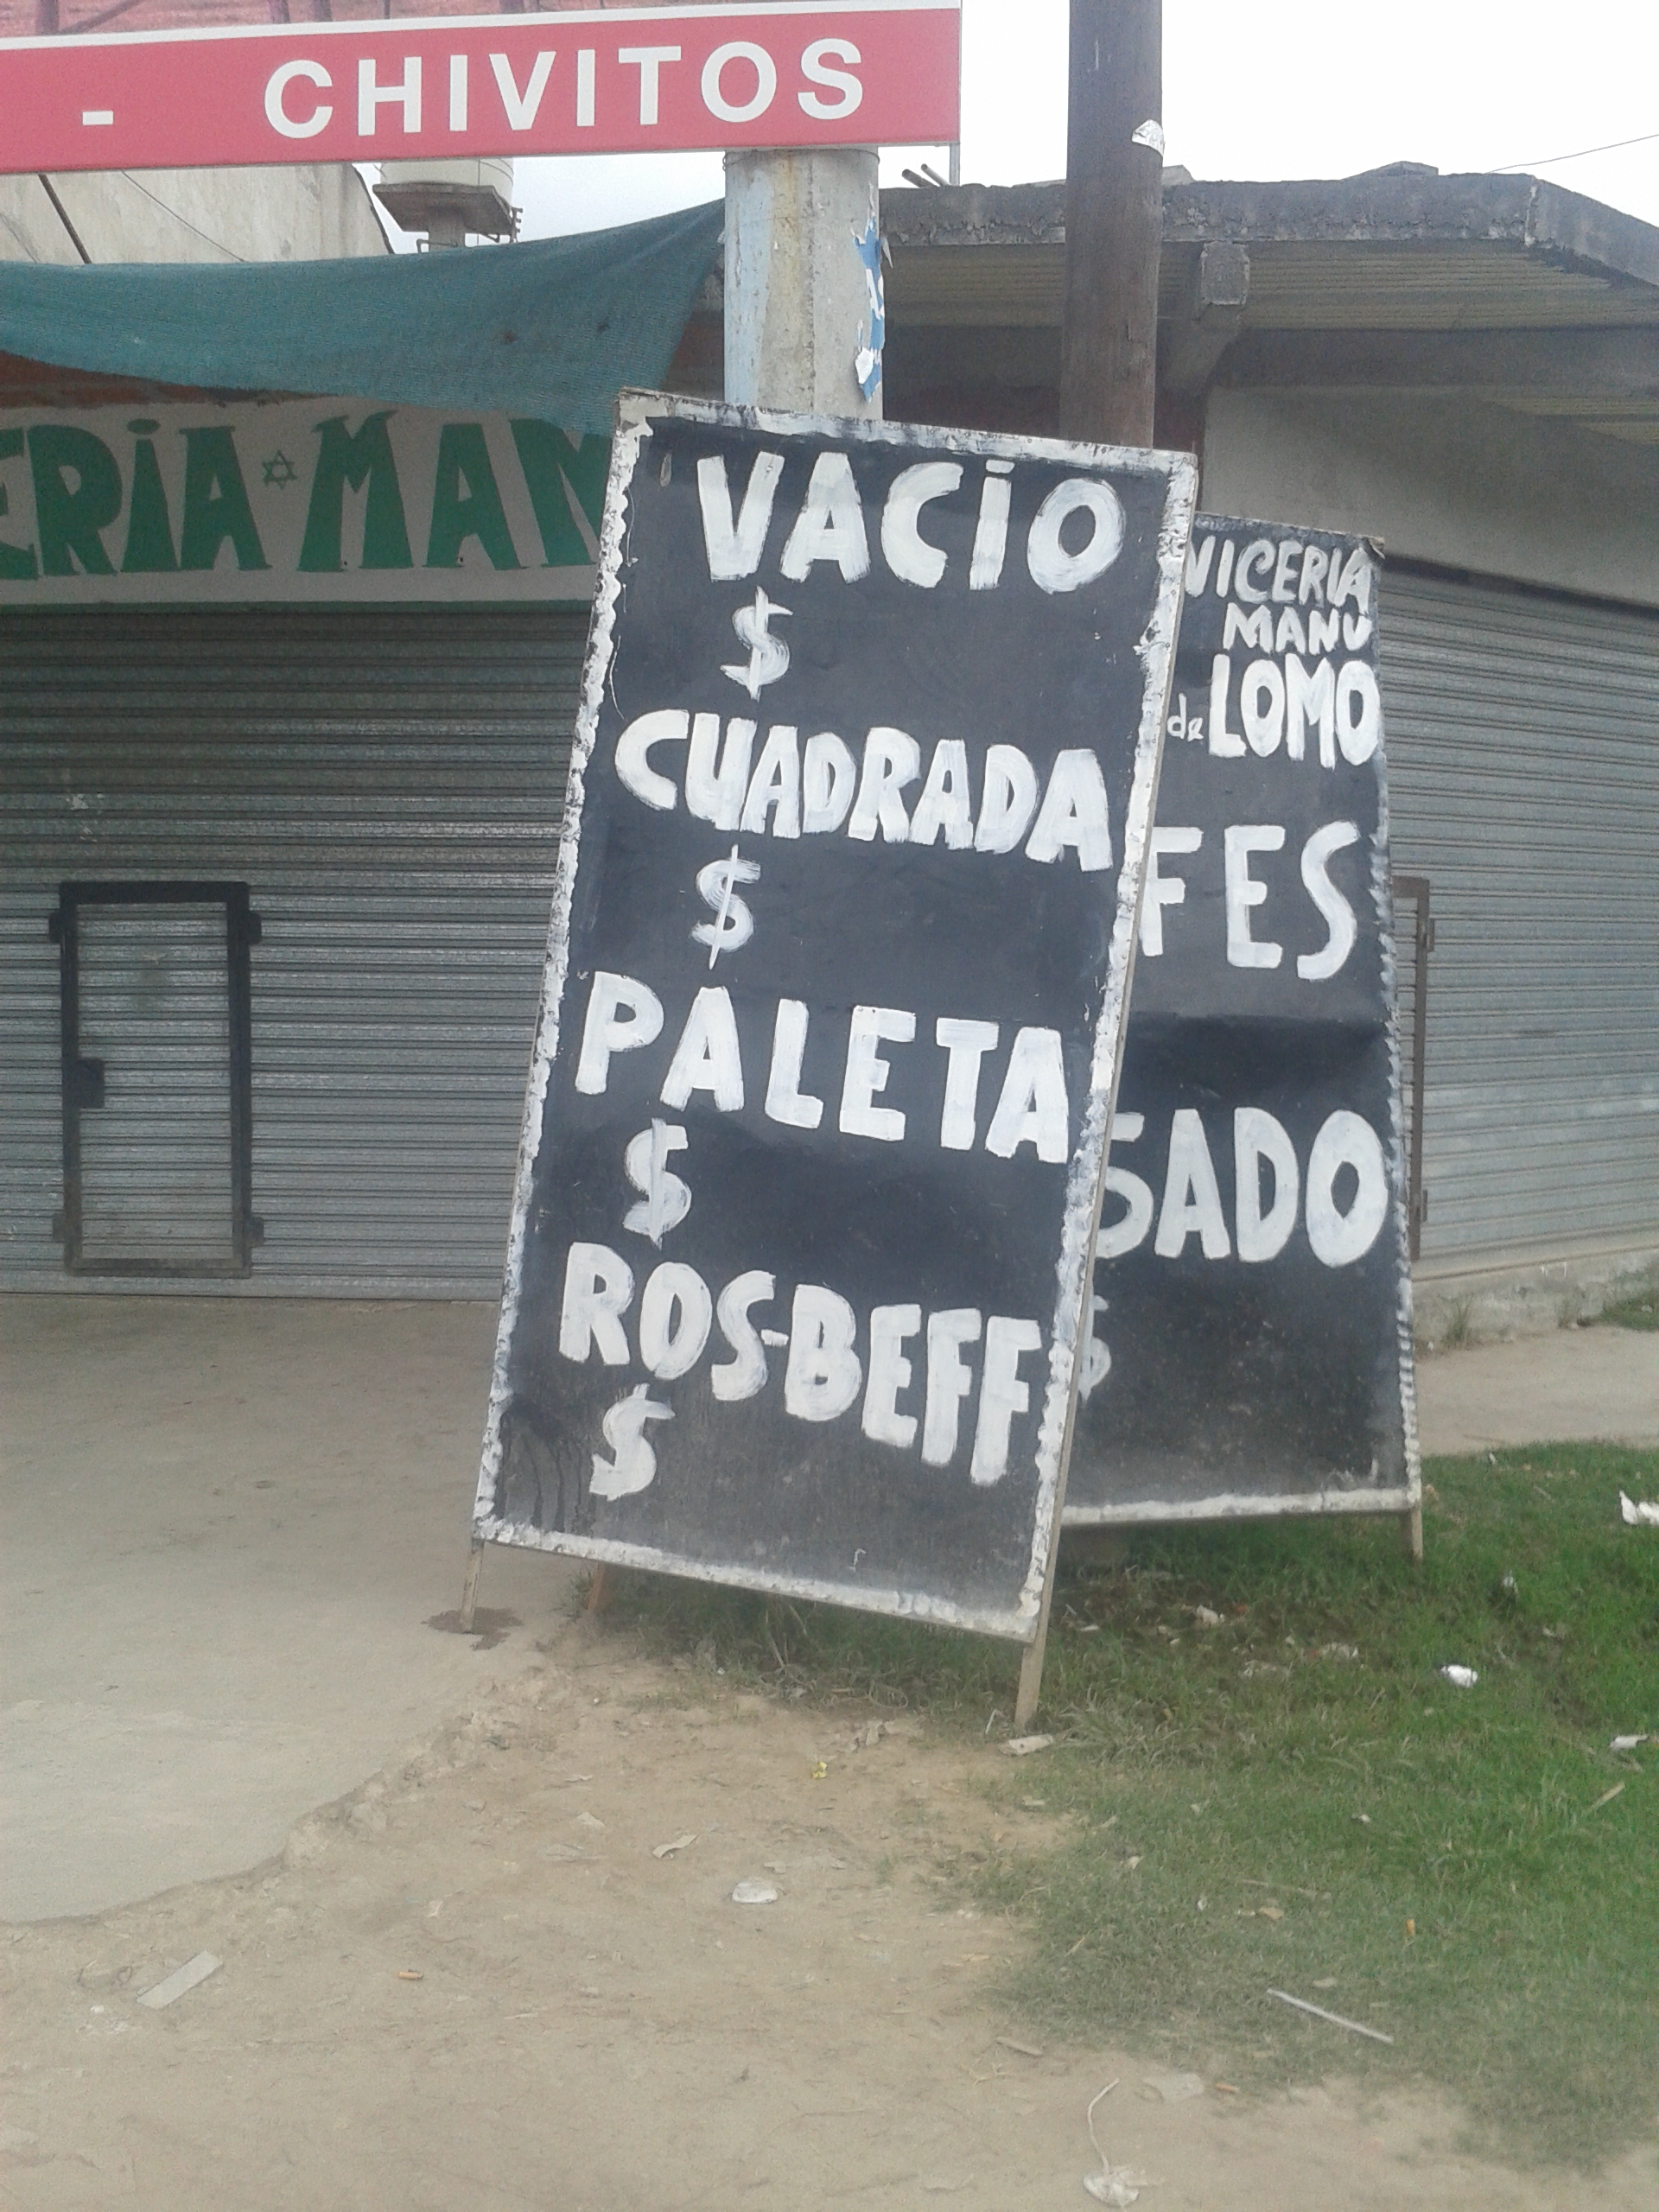 - CHIVITOS
ERIA MAN
VACIO
$
CUADRADA
$
PALETA
$
ROS-BEFF
$
VICERIA
MANU
de LOMO
FES
SADO
$